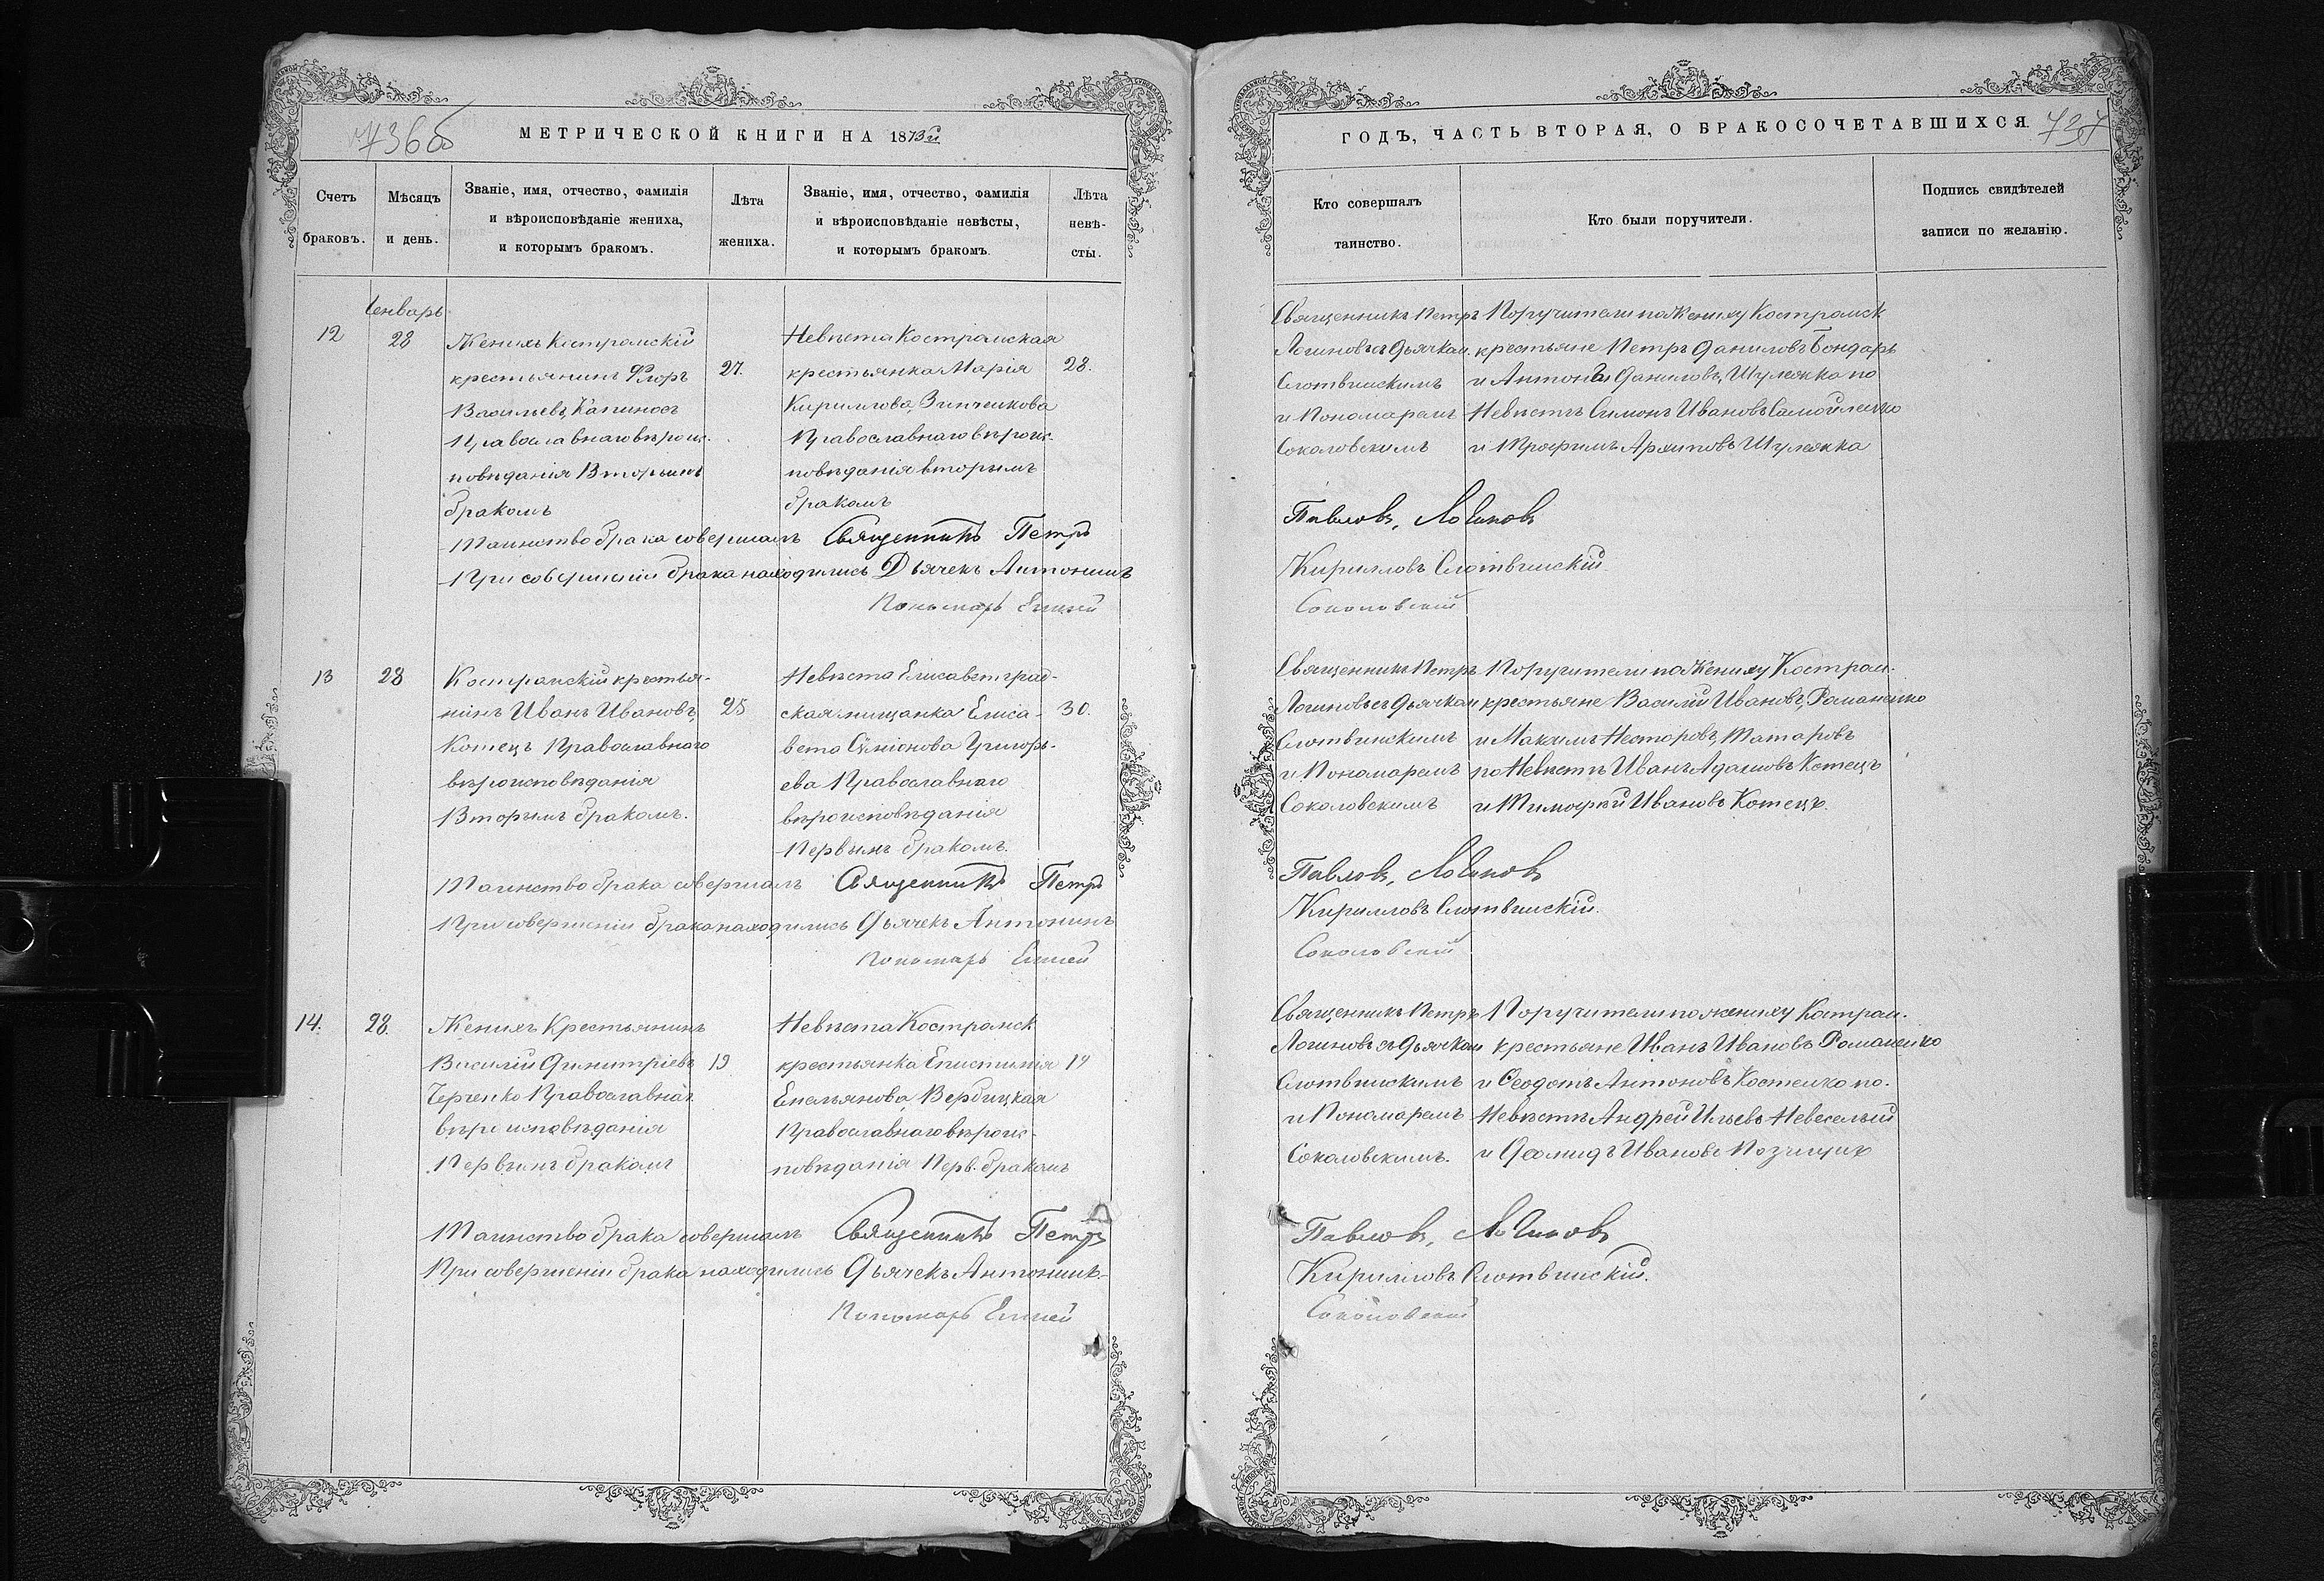 736об
МЕТРИЧЕСКОЙ КНИГИ НА 1873й
Счетъ браковъ.
Мѣсяцъ и день.
Званіе, имя, отчество, фамилія
и вѣроисповѣданіе жениха,
и которымъ бракомъ.
Лѣта жениха.
Званіе, имя, отчество, фамилія
и вѣроисповѣданіе невѣсты,
и которымъ бракомъ.
Лѣта невѣ-
сты.
Генварь
12
28
Женихъ Костромскій
крестьянинъ Флоръ
Васильевъ, Капиносъ
Православнаго вѣроис-
повѣданія Вторымъ
бракомъ
27.
Невѣста Костромская
крестьянка Марія
Кириллова, Зинченкова
Православнаго вѣроис-
повѣданія вторымъ
бракомъ
28.
Таинство брака совершалъ Священникъ Петръ
При совершеніи брака находились Дьячекъ Антонинъ
Пономарь Елисей
13
28
Костромскій крестья-
нинъ Иванъ Ивановъ,
Котецъ Православнаго
вѣроисповѣданія
Вторымъ бракомъ.
25
Невѣста Елисаветград-
ская мищанка Елиса-
вета Симіонова Григорь-
ева Православнаго
вѣроисповѣданія
Первымъ бракомъ.
30.
Таинство брака совершалъ Священникъ Петръ
При совершеніи брака находились Дьячекъ Антонинъ
Пономарь Елисей
14.
28.
Женихъ Крестьянинъ
Василій Димитріевъ
Черченко Православнаг
вѣроисповѣданія
Первымъ бракомъ
19
Невѣста Костромск
крестьянка Епистимія
Емельянова, Вербицкая
Православнаго вѣроис-
повѣданія Перв. бракомъ
19
Таинство брака совершалъ Священникъ Петръ
При совершеніи брака находились Дьячекъ Антонинъ
Пономарь Елисей
ГОДЪ, ЧАСТЬ ВТОРАЯ, О БРАКОСОЧЕТАВШИХСЯ.
737
Кто совершалъ
таинство.
Кто были поручители.
Подпись свидѣтелей
записи по желанію.
Священникъ Петръ
Логиновъ съ дьячком.
Слотвинскимъ
и Пономаремъ
Соколовскимъ
Поручители по Жениху Костромск
крестьяне Петръ Даниловъ Бондарь
и Антоній Даниловъ, Шулежка по
Невѣстѣ Симонъ Ивановъ Самойленко
и Трофимъ Архиповъ Шулежка
Павловъ, Логиновъ
Кирилловъ Слотвинскій
Соколовскій
Священникъ Петръ
Логиновъ съ дьячком
Слотвинскимъ
и Пономаремъ
Соколовскимъ
Поручители по Жениху Костром.
крестьяне Василій Ивановъ, Романенко
и Максимъ Несторовъ, Татаровъ
по Невѣстѣ Иванъ Адамовъ Котецъ
и Тимофей Ивановъ Котецъ.
Павловъ, Логиновъ
Кирилловъ Слотвинскій.
Соколовскій
Священникъ Петръ
Логиновъ съ дьячком
Слотвинскимъ
и Пономаремъ
Соколовскимъ.
Поручители по жениху Костром.
крестьяне Иванъ Ивановъ Романенко
и Ѳеодотъ Антоновъ Костенко по.
Невѣстѣ Андрей Ильевъ Невеселый
и Диомидъ Ивановъ
Павловъ, Логиновъ
Кирилловъ Слотвинскій.
Соколовскій